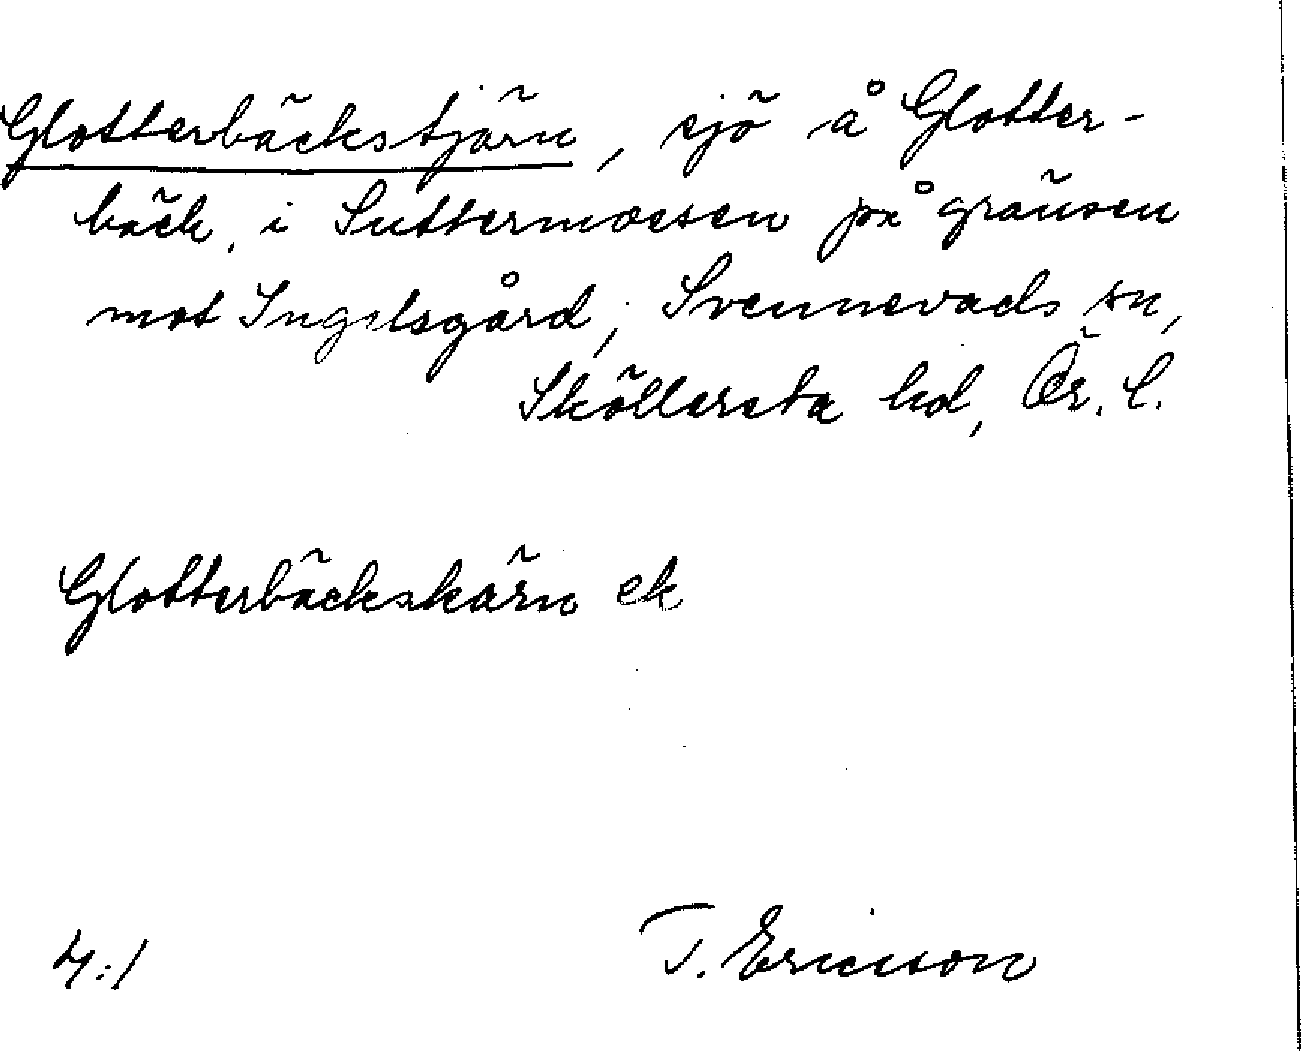 Glotterbäckstjärn, sjö å Glotter-
bäck, i Suttermossen på gränsen
mot Ingelsgård, Svennevads sn,
Sköllersta hd, Ör. l.
Glotterbäckskärn ek
4:1
T. Ericsson